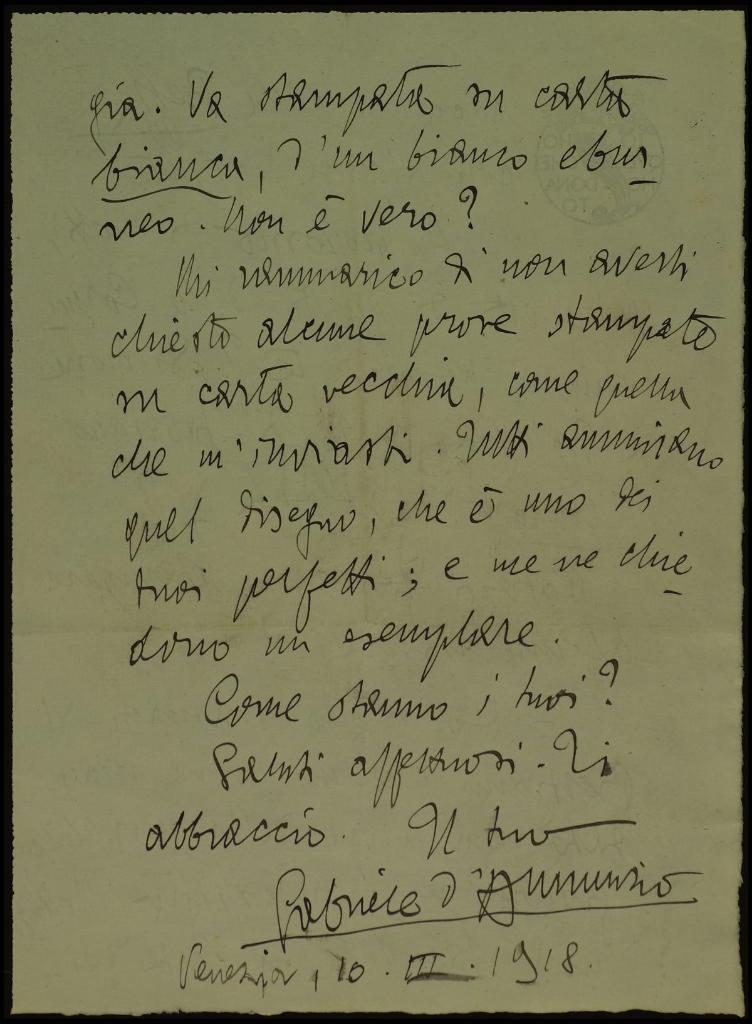 gia. Va stampata su carta
bianca, d'un bianco ebur
neo. Non è vero?
Mi rammarico di non averti
chiesto alcune prove stampate
su carta vecchia, come quella
che m'inviasti. Tutti ammirano
quel disegno, che è uno dei
tuoi perfetti; e me ne chie
dono un esemplare.
Come stanno i tuoi?
Saluti affettuosi. Ti
abbraccio. Il tuo
Gabriele d'Annunzio
Venezia, 10. III. 1918.